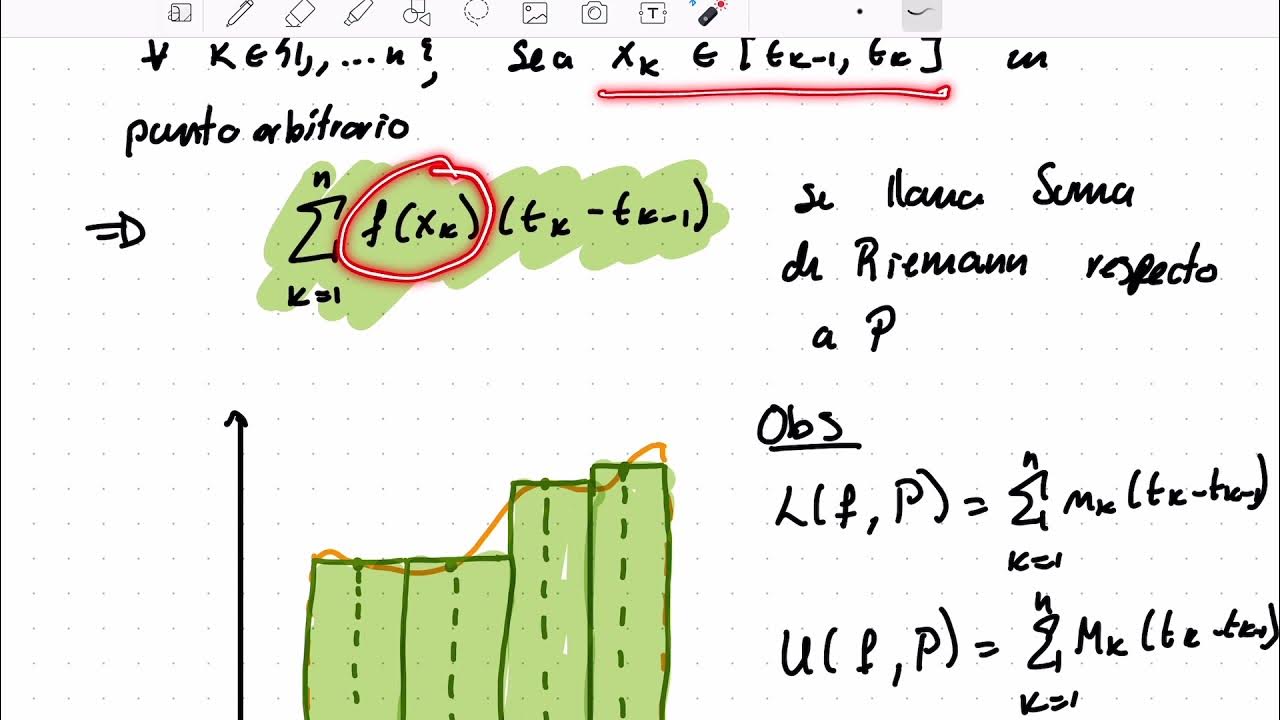 ∀ k ∈ {1, ... n}, Sea x_k ∈ [t_{k-1}, t_k] un
punto arbitrario
⇒ \sum_{k=1}^{n} f(x_k)(t_k - t_{k-1})
se llama Suma
de Riemann respecto
a P
Obs
L(f, P) = \sum_{k=1}^{n} m_k (t_k - t_{k-1})
U(f, P) = \sum_{k=1}^{n} M_k (t_k - t_{k-1})